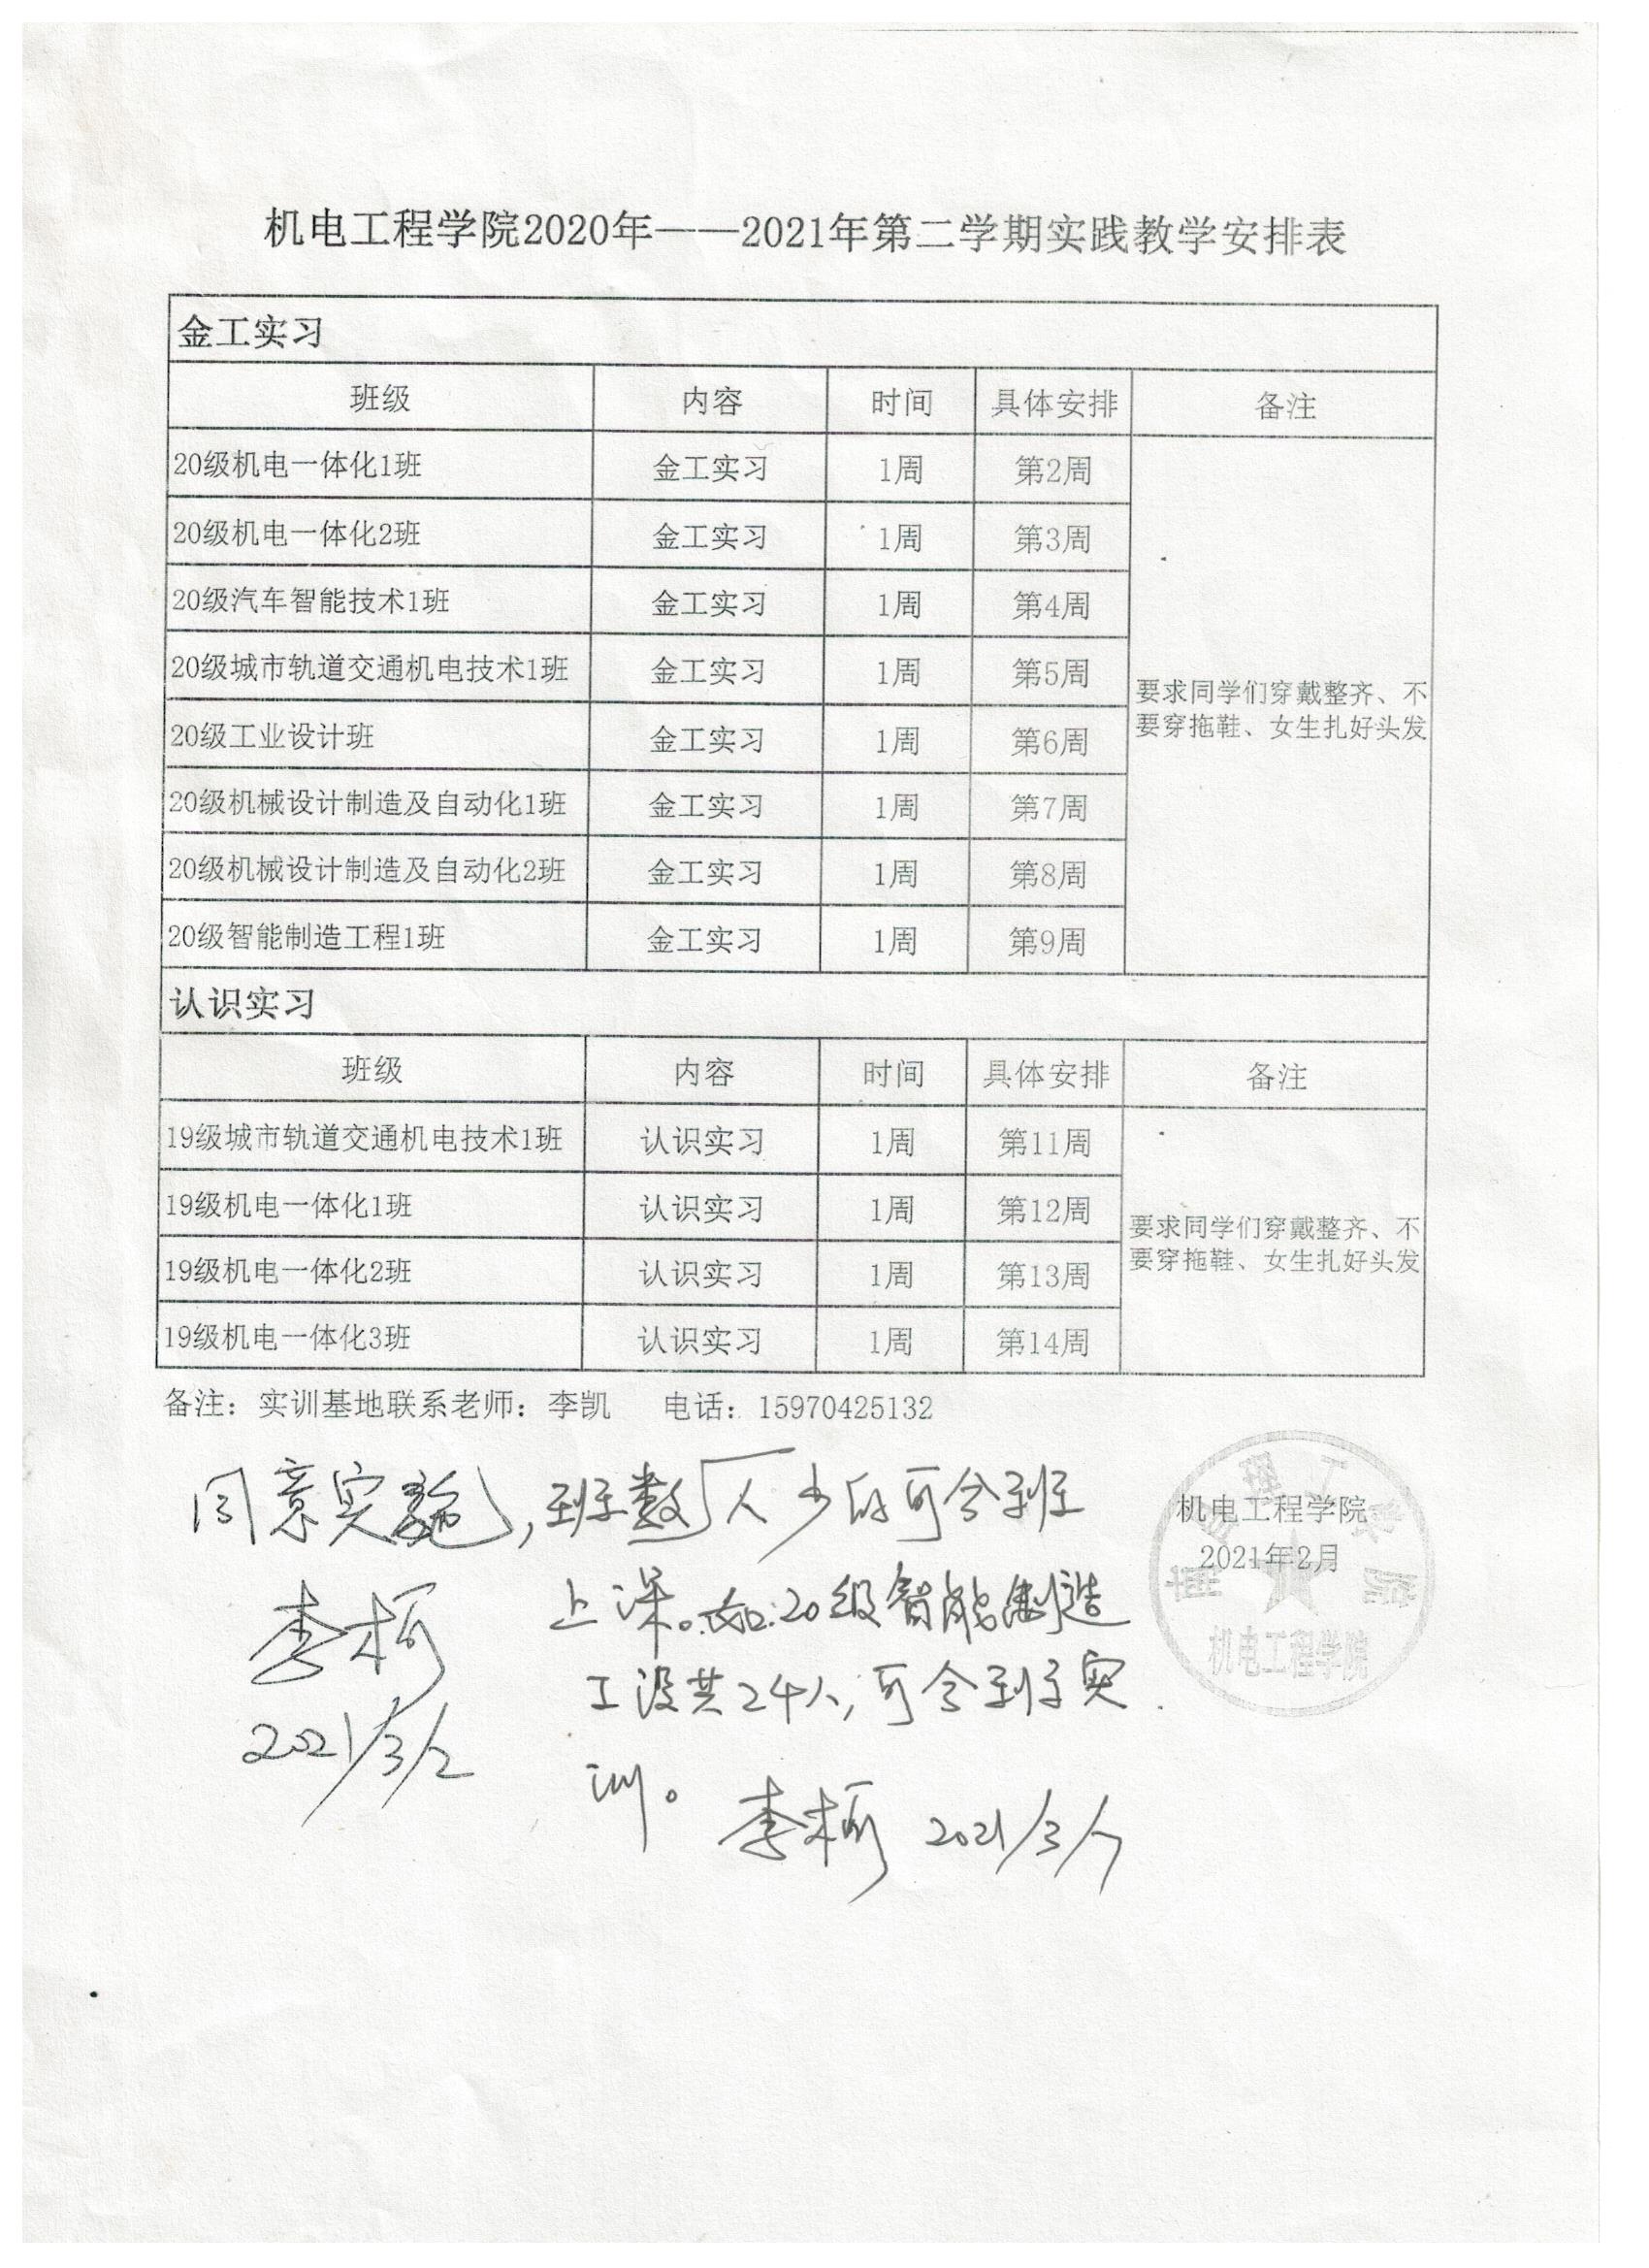 机电工程学院2020年——2021年第二学期实践教学安排表
金工实习
班级 内容 时间 具体安排 备注
20级机电一体化1班 金工实习 1周 第2周
20级机电一体化2班 金工实习 1周 第3周
20级汽车智能技术1班 金工实习 1周 第4周
20级城市轨道交通机电技术1班 金工实习 1周 第5周
要求同学们穿戴整齐、不
要穿拖鞋、女生扎好头发
20级工业设计班 金工实习 1周 第6周
20级机械设计制造及自动化1班 金工实习 1周 第7周
20级机械设计制造及自动化2班 金工实习 1周 第8周
20级智能制造工程1班 金工实习 1周 第9周
认识实习
班级 内容 时间 具体安排 备注
19级城市轨道交通机电技术1班 认识实习 1周 第11周
19级机电一体化1班 认识实习 1周 第12周
要求同学们穿戴整齐、不
要穿拖鞋、女生扎好头发
19级机电一体化2班 认识实习 1周 第13周
19级机电一体化3班 认识实习 1周 第14周
备注：实训基地联系老师：李凯 电话：15970425132
同意实施，班数人少的可合班
上课。如:20级智能制造
工设共24人，可合班实
训。
李柯
2021/3/2
李柯 2021/3/
机电工程学院
2021年2月
理工学院
机电工程学院